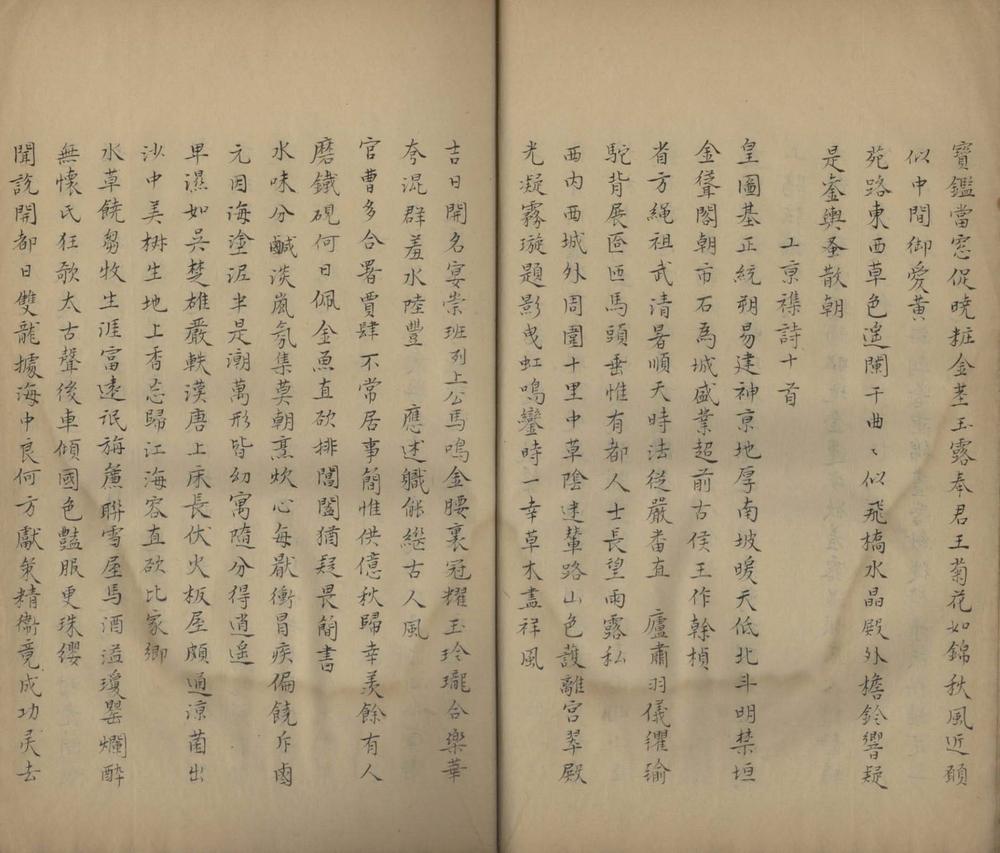 寶鑑當窓促曉粧金莖玉露奉君王菊花如錦秋風近頋
似中間御愛黃
苑路東西草色遥闌干曲〻似飛橋水晶殿外檐鈴響疑
是鑾輿蚤散朝
上京襍詩十首
皇圖基正統朔易建神京地厚南坡暖天低北斗明禁垣
金聳閣朝市石爲城盛業超前古侯王作榦楨
省方繩祖武清暑順天時法從嚴畨直 廬肅羽儀纙瑜
駝背展匼匝馬頭垂惟有都人士長望雨露私
西内西城外周圍十里中草陰迷輦路山色護離宮翠殿
光凝霧璇題影曵虹鳴鑾時一幸草木盡祥風
吉日開名宴崇班列上公馬鳴金腰褭冠耀玉玲瓏合樂華
夸混群羞水陸豐 應述軄能繼古人風
官曹多合署賈肆不常居事簡惟供億秋歸幸羨餘有人
磨鐵硯何日佩金魚直欲排閶闔猶疑畏簡書
水味分鹹淡嵐氛集莫朝烹炊心每厭衝冒疾偏饒斥鹵
元因海塗泥半是潮萬形皆幻寓隨分得逍遥
卑濕如吳楚雄嚴軼漢唐上床長伏火板屋頗通涼菌出
沙中美椒生地上香忘歸江海客直欲比家鄉
水草饒芻牧生涯富遠氓旃廬聯雪屋馬酒溢瓊罌爛醉
無懷氏狂歌太古聲後車傾國色豔服更珠纓
聞說開都日雙龍據海中良何方獻策精衞竟成功灵去